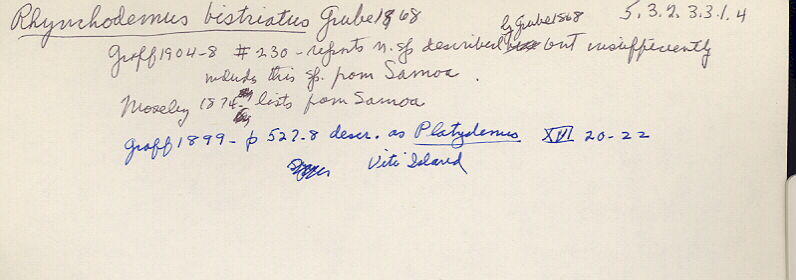 Rhynchodemus bistriatus Grube 1868 5.3.2.3.3.1.4
Graff 1904-8 # 230 - reports n. sp. described by Grube 1868 but insufficiently
includes this sp. from Samoa.
Moseley 1874 - lists from Samoa
Graff 1899 - p 527-8 descr. as Platydemus XVI 20-22
Viti Island